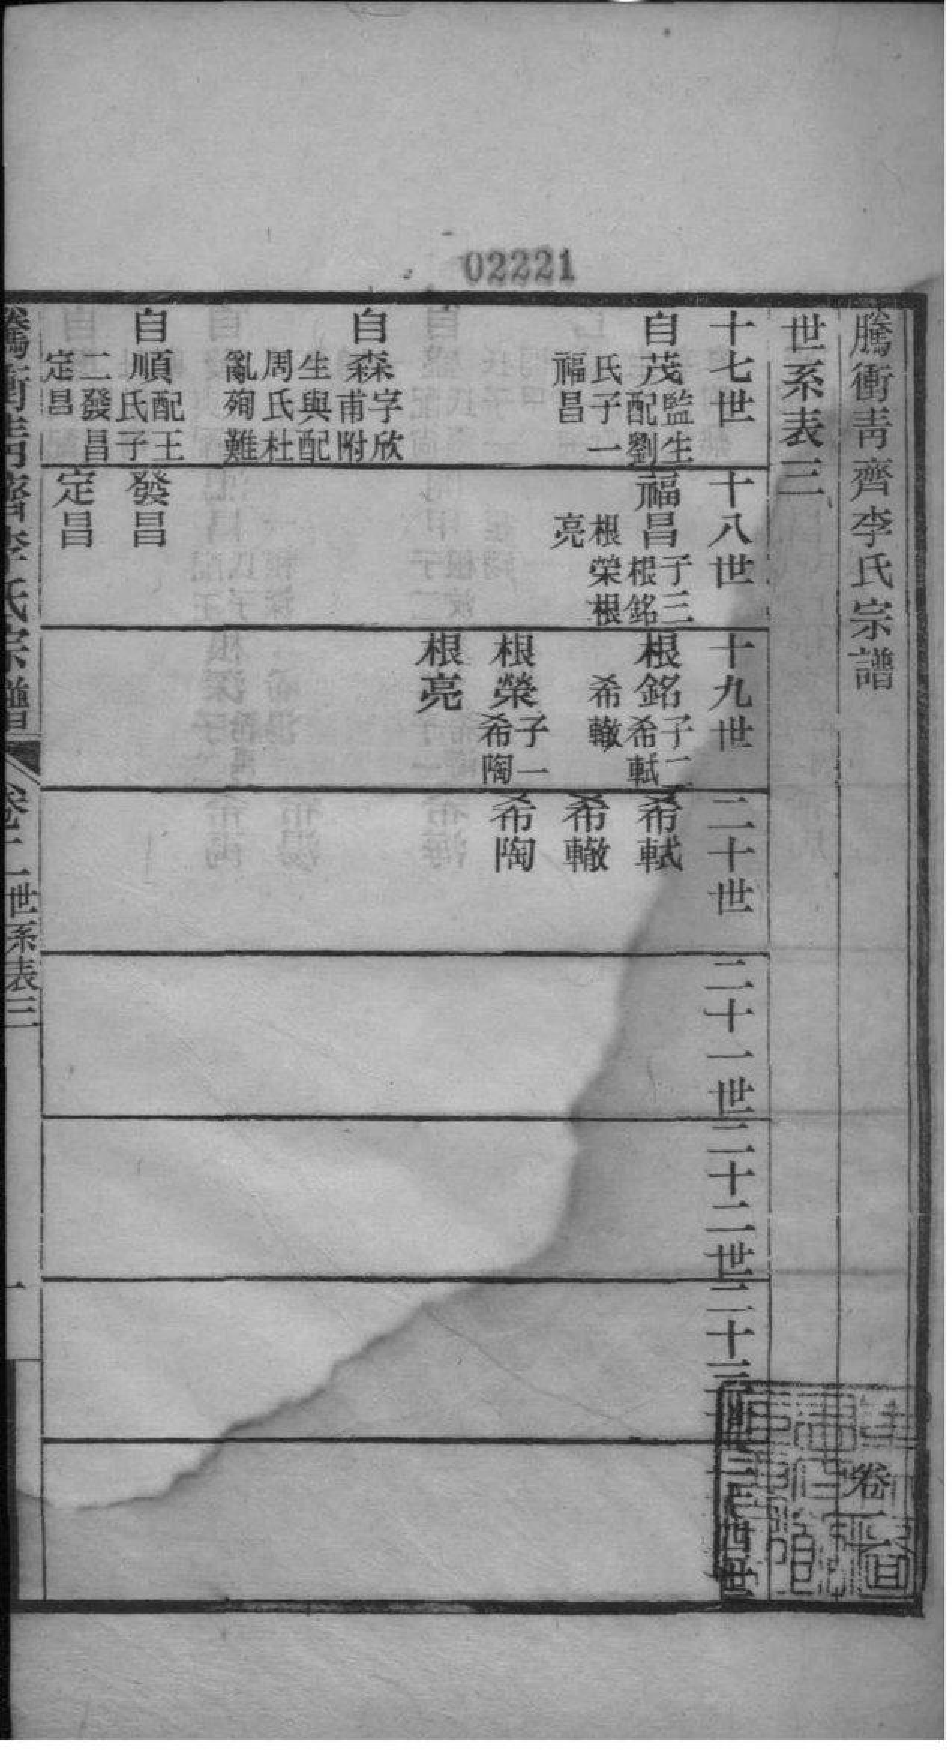 02221
騰衝青齊李氏宗譜
卷二
世系表三
十七世
十八世
十九世
二十世
二十一世
二十二世
二十三世
二十四世
自茂監生配劉
氏子一
福昌
自森字欣甫附
生與配
周氏杜
亂殉難
自順配王氏子
二發昌
定昌
福昌子三根銘
根榮根
亮
發昌
定昌
根銘子二希軾
希轍
根榮子一希陶
根亮
希軾
希轍
希陶
騰衝青齊李氏宗譜
卷二世系表三
一